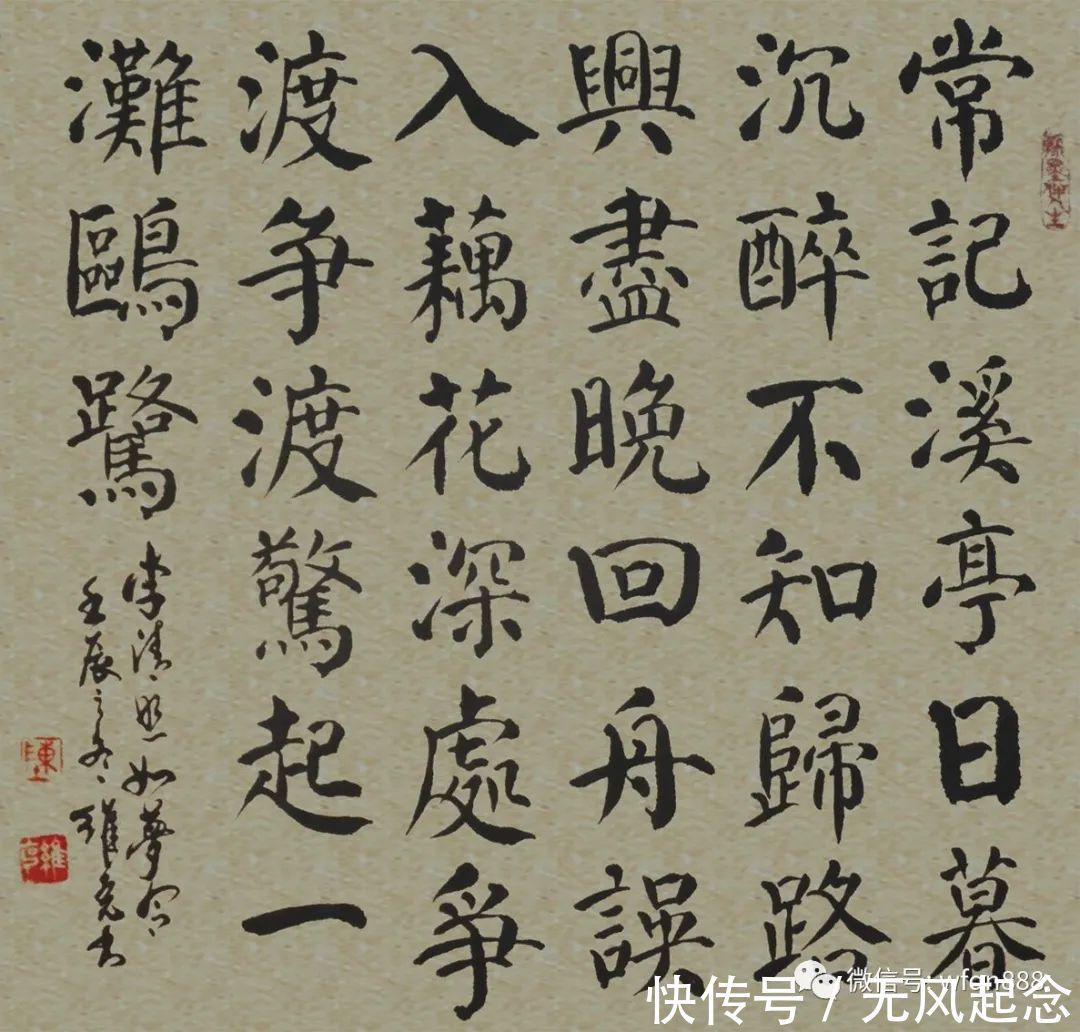 常記溪亭日暮
沉醉不知歸路
興盡晚回舟誤
入藕花深處爭
渡争渡驚起一
灘鷗鷺
李清照如夢令
壬辰之冬雄亮書
微信号: wfgn888
快传号 / 无风起念